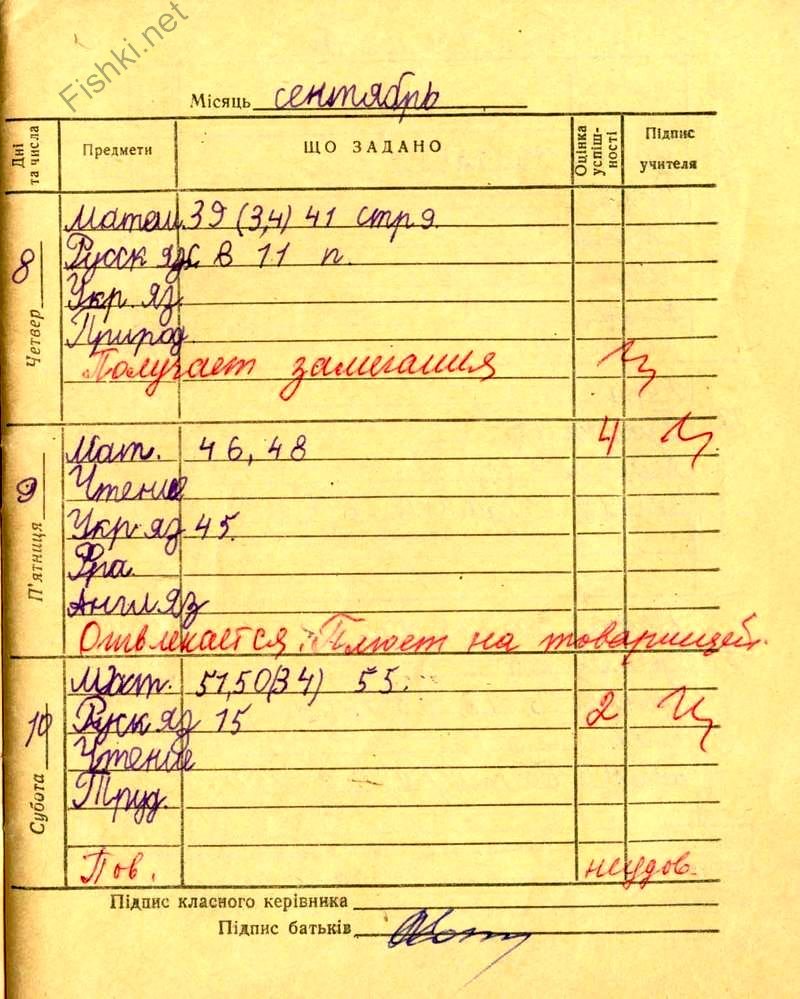 Fishki.net
Місяць сентябрь
Дні та числа Предмети ЩО ЗАДАНО Оцінка успіш-ності Підпис учителя
8 Четвер
Матем. 39 (3,4) 41 стр 9.
Русск яз. в 11 п.
Укр. яз.
Природ.
Получает замечания
9 П'ятниця
Мат. 46, 48 4
Чтение
Укр яз 45.
Фра.
Англ яз
Отвлекается. Плюет на товарищей.
10 Субота
Мат. 51,50(3 4) 55.
Руск яз 15 2
Чтение
Труд.
Пов. неудов.
Підпис класного керівника
Підпис батьків